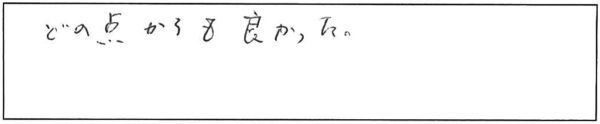 どの点からも良かった。